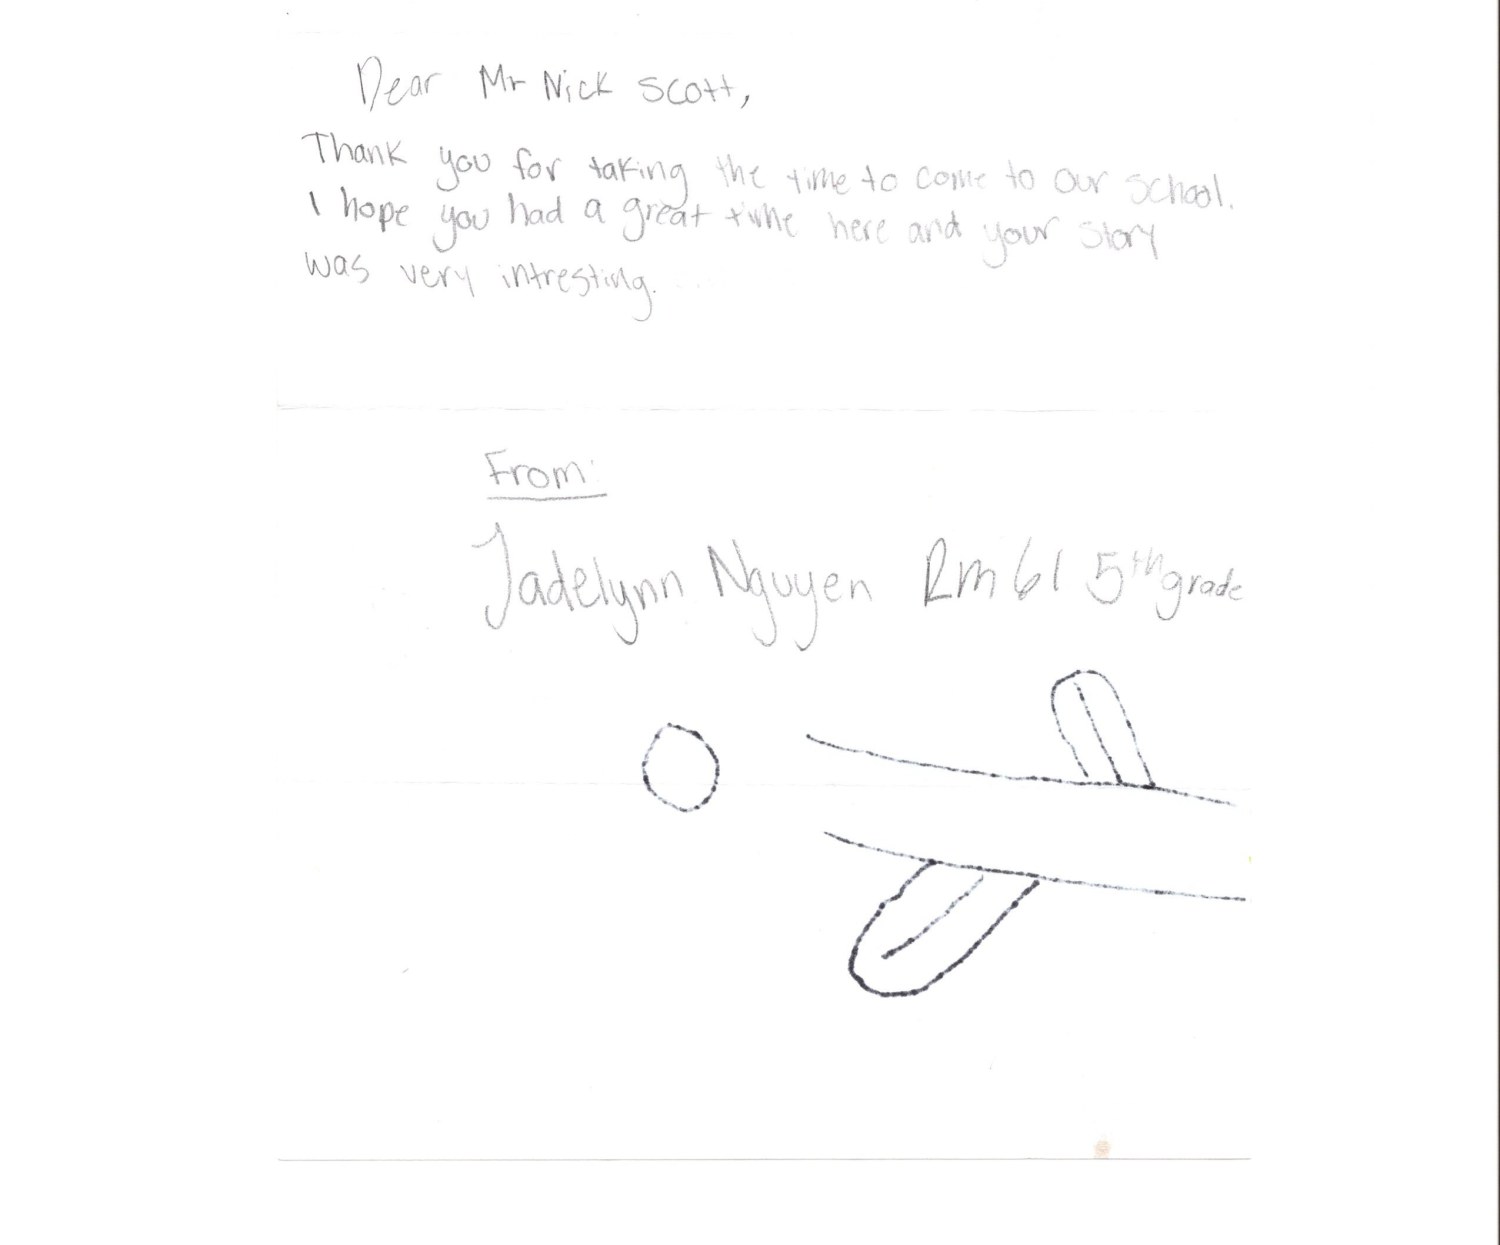 Dear Mr Nick Scott,
Thank you for taking the time to come to our school.
I hope you had a great time here and your story
was very intresting.
From:
Jadelynn Nguyen Rm 61 5th grade